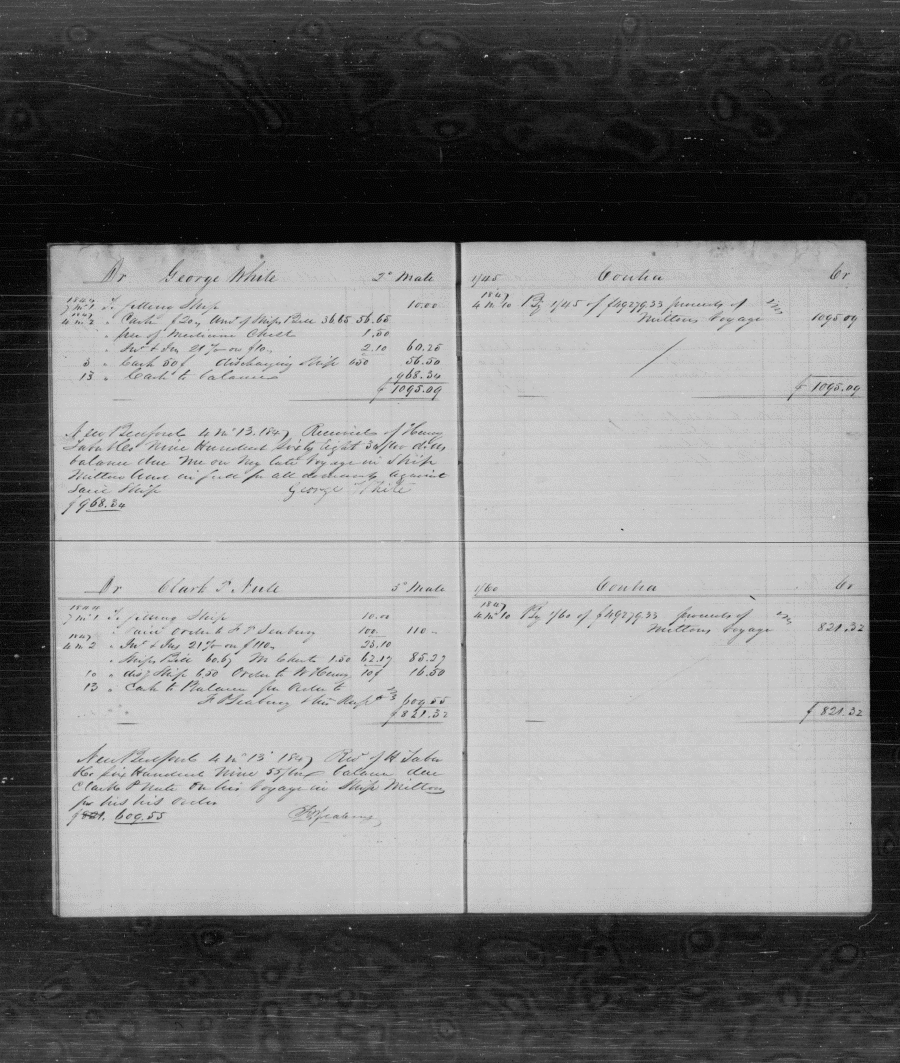 Dr George White 2d Mate
1844
7 mo 1 To fitting Ship 10.00
1847
4 mo 2 " Cash $20 Amt of Ships Bill 36.65 56.65
" Use of Medicine Chest 1.50
" Int & Ins 21 % on $10 2.10 60.25
3 " Cash 50$ discharging Ship 650 56.50
13 " Cash to Balance 968.34
$ 1095.09
New Bedford 4 mo 13 1847 Received of Henry
Taber & Co Nine Hundred Sixty Eight 34/100 dollars
balance due me on my late Voyage in Ship
Milton and in full for all demands against
said Ship George White
$968.34
Dr Clark P. 3d Mate
1844
7 mo 1 To fitting Ship 10.00
" paid order to F P Seabury 100 110
1847
4 mo 2 " Int & Ins 21 % on $110 23.10
" Ships Bill 60.67 M Chest 1.50 62.17 85.27
10 " disg Ship 6.50 Order to W 10$ 16.50
13 " Cash to Balance per Order to
F P Seabury & his Rect 609.55
$ 821.32
New Bedford 4 mo 13 1847 Recd of H Taber
& Co Six Hundred Nine 55/100 balance due
Clark P on his Voyage in Ship Milton
per his his order
$821. 609.55
1/45 Contra Cr
1847
4 mo 10 By 1/45 of $49279.33 proceeds of
Miltons Voyage 1095.09
$ 1095.09
1/60 Contra Cr
1847
4 mo 10 By 1/60 of $49279.33 proceeds of
Miltons Voyage 821.32
$ 821.32